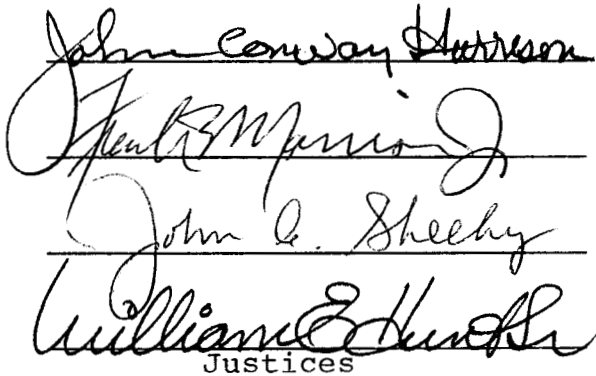 John Conway Harrison
Frank B Morrison Jr
John C. Sheehy
William E Hunt Sr
Justices